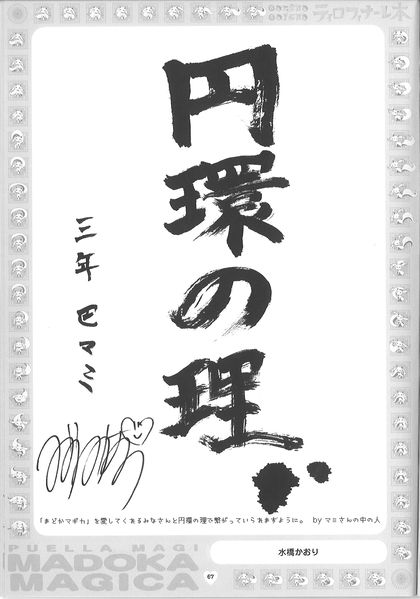 ティロフィナーレ本
円環の理
三年 巴マミ
「まどかマギカ」を愛してくれるみなさんと円環の理で繋がっていられますように。 by マミさんの中の人
水橋かおり
PUELLA MAGI
MADOKA
MAGICA
67